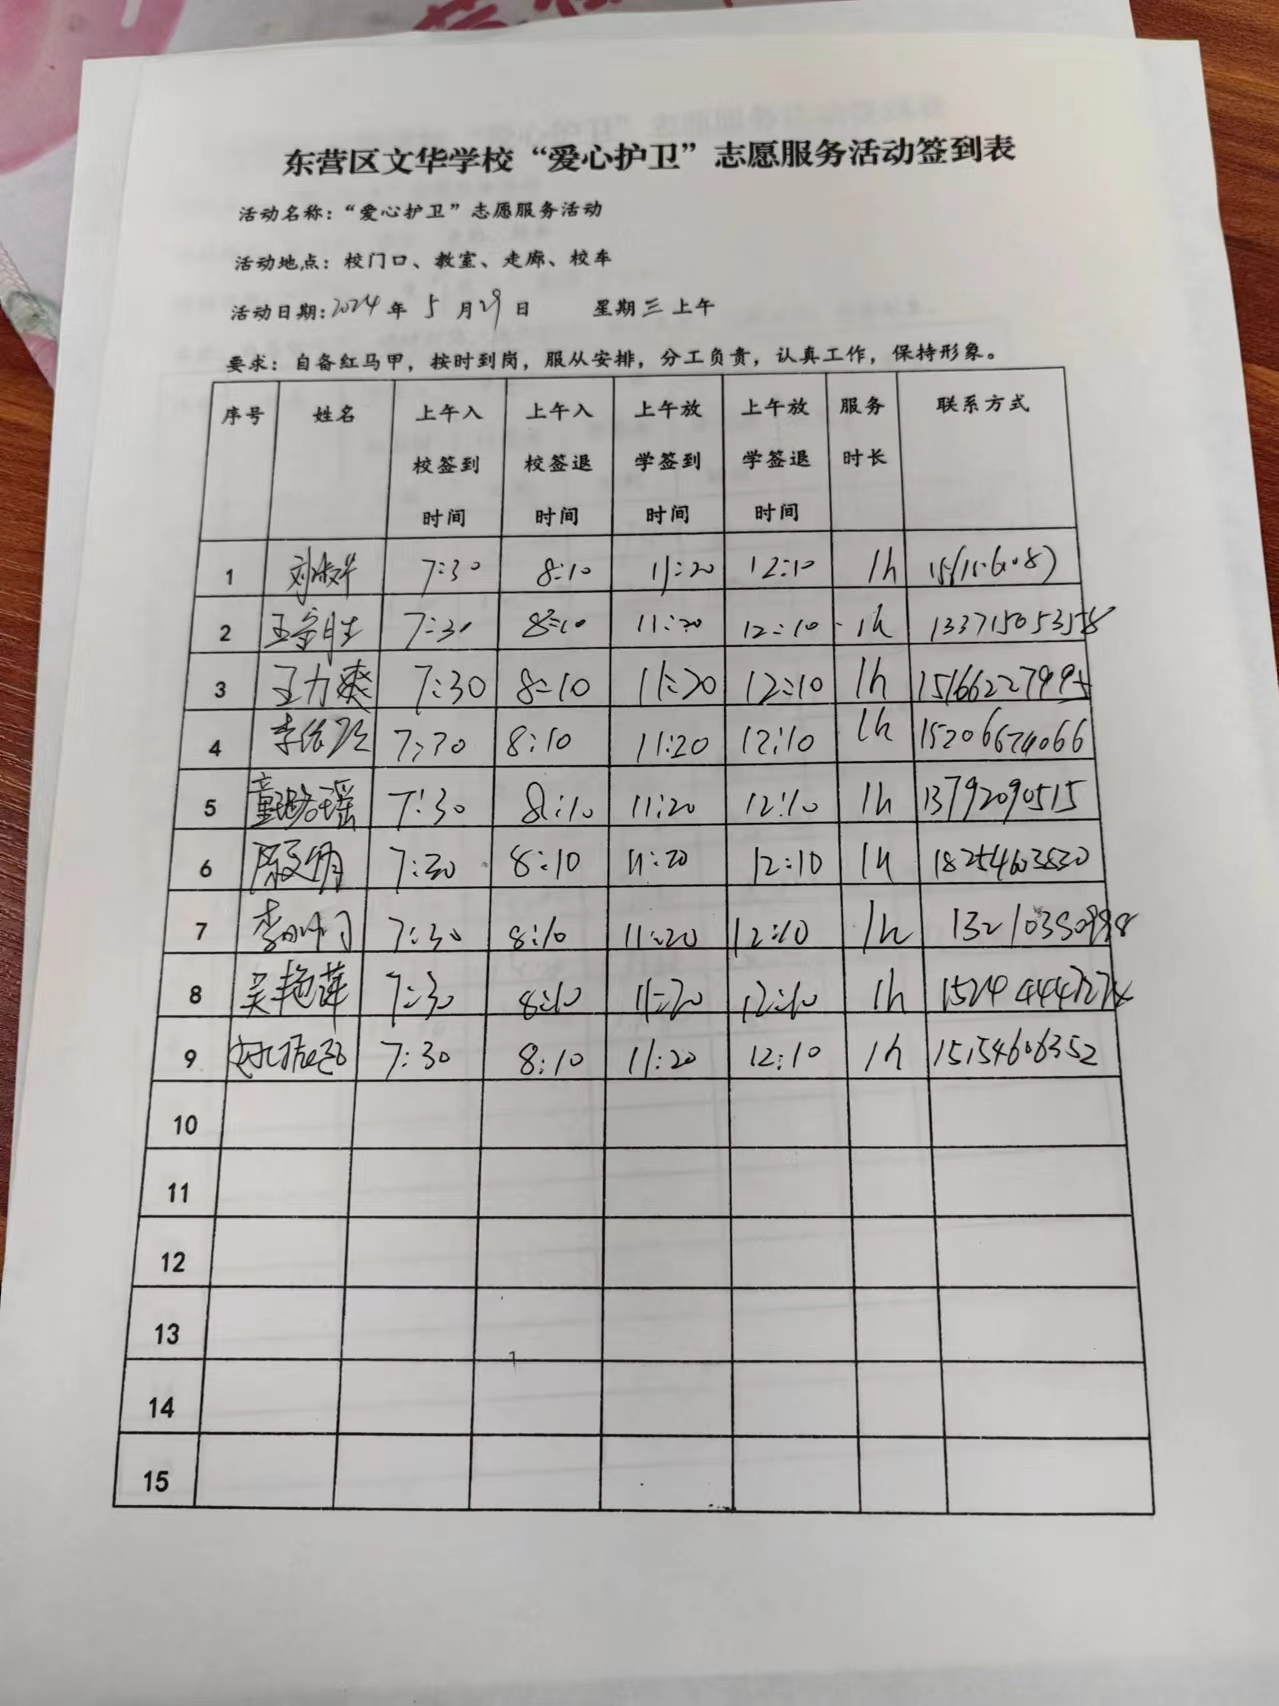 东营区文华学校“爱心护卫”志愿服务活动签到表
活动名称：“爱心护卫”志愿服务活动
活动地点：校门口、教室、走廊、校车
活动日期：2024年 5月29日 星期三 上午
要求：自备红马甲，按时到岗，服从安排，分工负责，认真工作，保持形象。
序号 姓名 上午入校签到时间 上午入校签退时间 上午放学签到时间 上午放学签退时间 服务时长 联系方式
1 7:30 8:10 11:20 12:10 1h
2 7:30 8:10 11:20 12:10 1h
3 王力爽 7:30 8:10 11:20 12:10 1h 15166227995
4 7:30 8:10 11:20 12:10 1h 15206674066
5 童璐瑶 7:30 8:10 11:20 12:10 1h 13792090515
6 7:30 8:10 11:20 12:10 1h 18254603830
7 7:30 8:10 11:20 12:10 1h
8 吴艳萍 7:30 8:10 11:20 12:10 1h
9 7:30 8:10 11:20 12:10 1h 15154606352
10
11
12
13
14
15